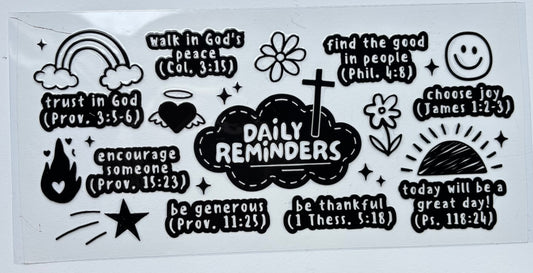 walk in God's
peace
(Col. 3:15)
find the good
in people
(Phil. 4:8)
trust in God
(Prov. 3:5-6)
choose joy
(James 1:2-3)
DAiLY
REMINDERS
encourage
someone
(Prov. 15:23)
today will be a
great day!
(Ps. 118:24)
be generous
(Prov. 11:25)
be thankful
(1 Thess. 5:18)